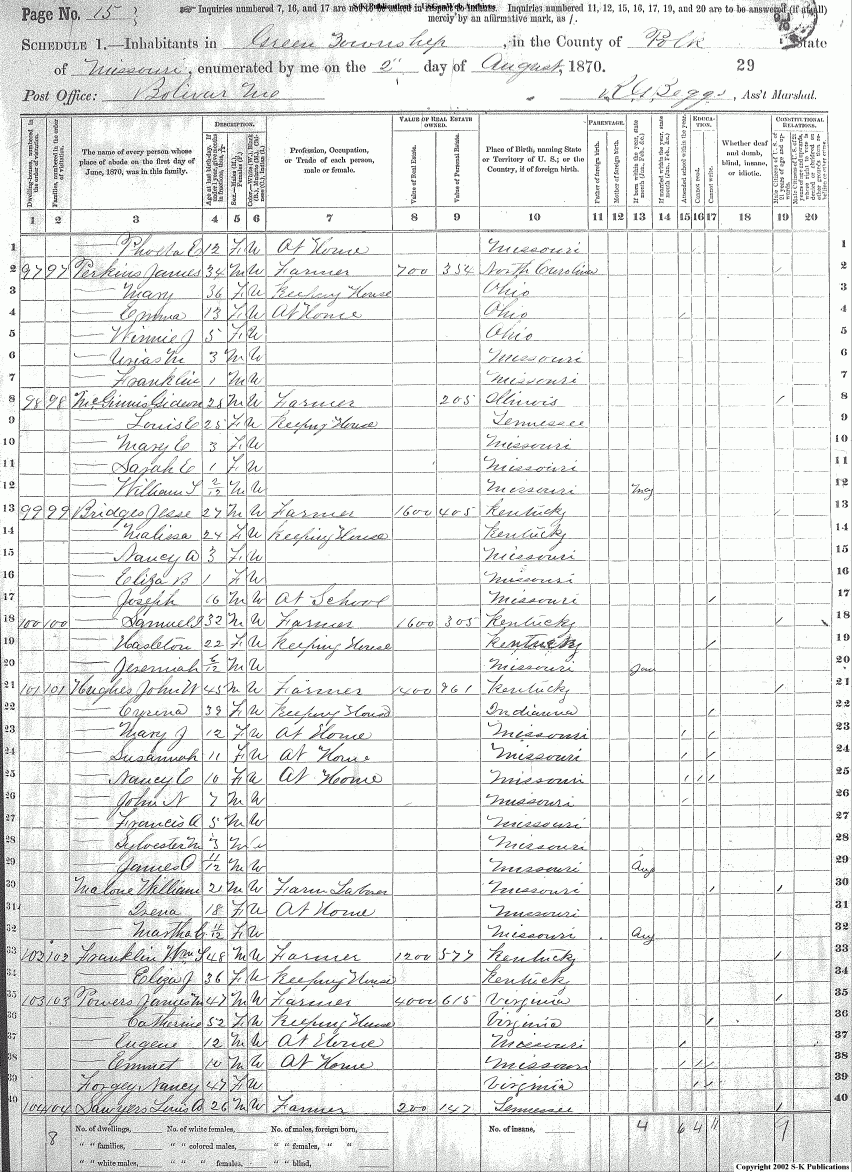 Page No. 15 Inquiries numbered 7, 16, and 17 are not to be asked in respect to infants. Inquiries numbered 11, 12, 15, 16, 17, 19, and 20 are to be answered (if at all)
merely by an affirmative mark, as /.
SCHEDULE 1.—Inhabitants in Green Township, in the County of Polk, State
of Missouri, enumerated by me on the 2 day of August, 1870. 29
Post Office: Bolivar Mo R G Beggs, Ass't Marshal.
DESCRIPTION. VALUE OF REAL ESTATE OWNED. PARENTAGE. EDUCATION. CONSTITUTIONAL RELATIONS.
Dwellings, numbered in the order of visitation. Families, numbered in the order of visitation. The name of every person whose place of abode on the first day of June, 1870, was in this family. Profession, Occupation, or Trade of each person, male or female. Value of Real Estate. Value of Personal Estate. Place of Birth, naming State or Territory of U. S.; or the Country, if of foreign birth. Father of foreign birth. Mother of foreign birth. Attended school within the year. Cannot read. Cannot write. Whether deaf and dumb, blind, insane, or idiotic.
1 2 3 4 5 6 7 8 9 10 11 12 13 14 15 16 17 18 19 20
1 E 12 F W At Home Missouri 1
2 97 97 Perkins James 34 M W Farmer 700 354 North Carolina / 2
3 — Mary 36 F W Keeping House Ohio 3
4 — Emma 13 F W At Home Ohio / 4
5 — Winnie J 5 F W Ohio 5
6 — Urias M 3 M W Missouri 6
7 — Franklin 1 M W Missouri 7
8 98 98 McGinnis Gideon 28 M W Farmer 205 Illinois / 8
9 — Louis C 25 F W Keeping House Tennessee 9
10 — Mary E 3 F W Missouri 10
11 — Sarah E 1 F W Missouri 11
12 — William S 2/12 M W Missouri May 12
13 99 99 Bridges Jesse 27 M W Farmer 1600 405 Kentucky / 13
14 — Malissa 24 F W Keeping House Kentucky 14
15 — Nancy A 3 F W Missouri 15
16 — Eliza B 1 F W Missouri 16
17 — Joseph 16 M W At School Missouri / 17
18 100 100 — Samuel 32 M W Farmer 1600 305 Kentucky / 18
19 — Hasleton 22 F W Keeping House Kentucky / 19
20 — Jeremiah 6/12 M W Missouri Jan 20
21 101 101 Hughes John W 45 M W Farmer 1400 961 Kentucky / 21
22 — Cyrena 39 F W Keeping House Indianna / 22
23 — Mary J 12 F W At Home Missouri / / 23
24 — Susannah 11 F W At Home Missouri / / 24
25 — Nancy E 10 F W At Home Missouri / / / 25
26 — John N 7 M W Missouri / 26
27 — Francis A 5 M W Missouri 27
28 — Sylvester M 3 M W Missouri 28
29 — James O 11/12 M W Missouri Aug 29
30 Malone William 21 M W Farm Laborer Missouri / / 30
31 — Irena 18 F W At Home Missouri 31
32 — Martha 11/12 F W Missouri Aug 32
33 102 102 Franklin Wm S 48 M W Farmer 1200 577 Kentucky / 33
34 — Eliza J 36 F W Keeping House Kentucky 34
35 103 103 Powers James M 47 M W Farmer 4000 615 Virginia / 35
36 — Catherine 52 F W Keeping House Virginia / 36
37 — Eugene 12 M W At Home Missouri / 37
38 — Emmet 10 M W At Home Missouri / / / 38
39 Forgey Nancy 47 F W Virginia / / 39
40 104 104 Sawyers Louis A 26 M W Farmer 200 147 Tennessee / 40
8 No. of dwellings, No. of white females, No. of males, foreign born, No. of insane, 4 6 4 11 9
" " families, " " colored males, " " females, "
" " white males, " " " females, " " blind,
Copyright 2002 S-K Publications